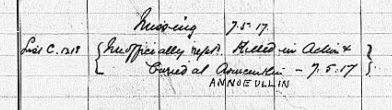 Missing 7.5.17.
List C. 1318 { Unofficially rept. Killed in Action &
Buried at Annoeullin - 7.5.17 }
ANNOEULLIN